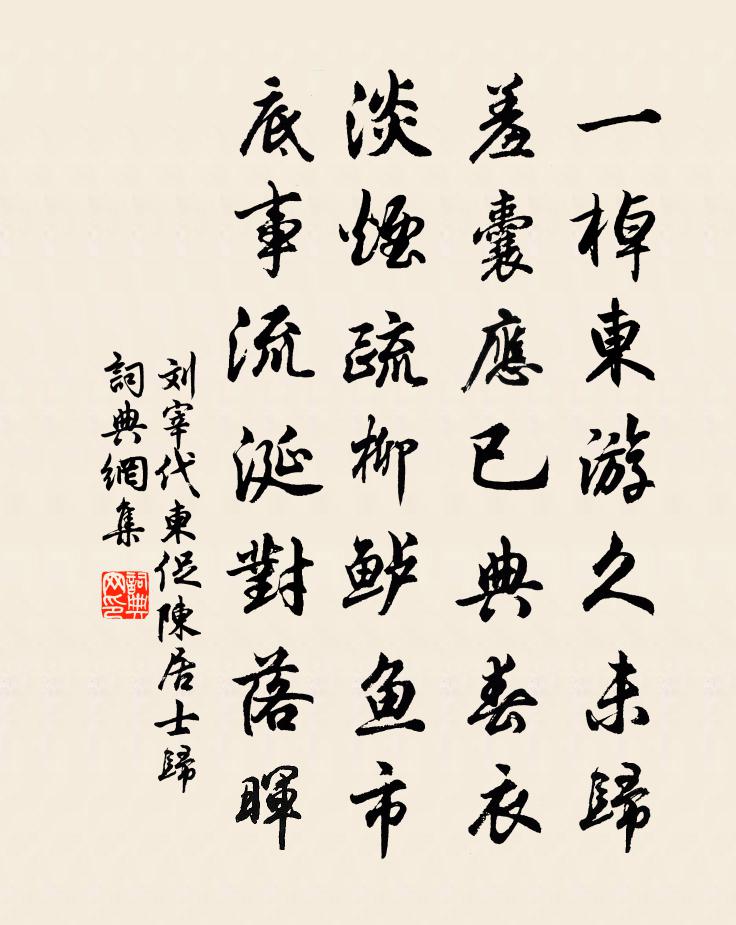 一棹東游久未歸
羞囊應已典春衣
淡煙疏柳鲈鱼市
底事流涎對落暉
刘宰代東促陳居士歸
詞典網集
詞典网印